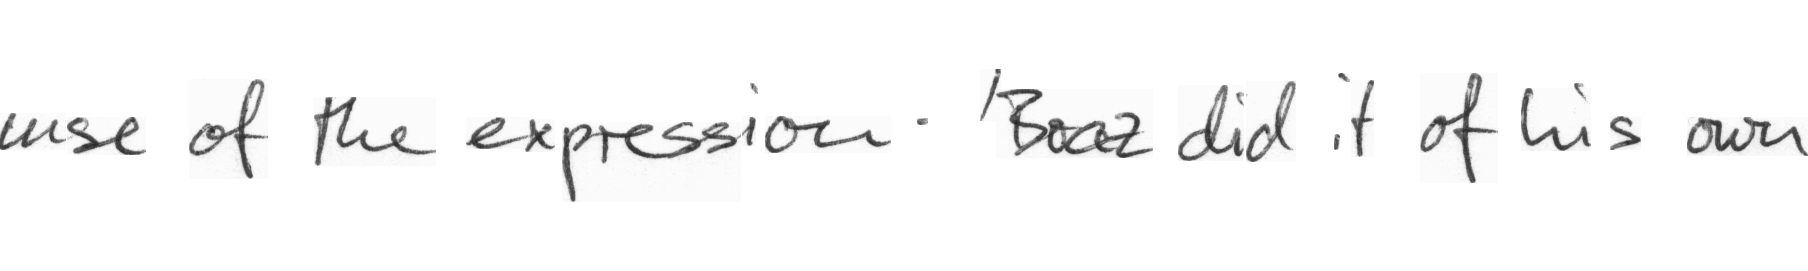 use of the expression. 'Boaz did it of his own